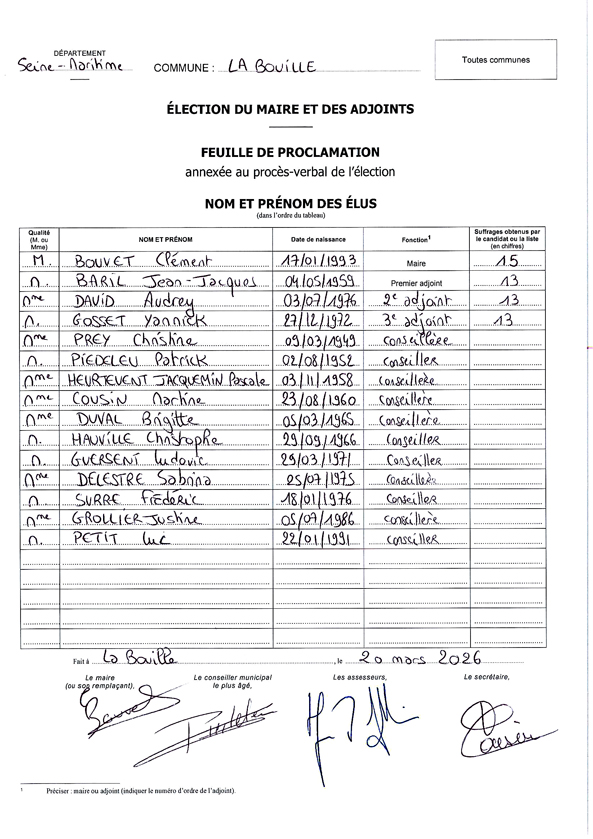 DÉPARTEMENT
Seine-Maritime
COMMUNE : LA BOUILLE
Toutes communes
ÉLECTION DU MAIRE ET DES ADJOINTS
FEUILLE DE PROCLAMATION
annexée au procès-verbal de l'élection
NOM ET PRÉNOM DES ÉLUS
(dans l'ordre du tableau)
Qualité (M. ou Mme) NOM ET PRÉNOM Date de naissance Fonction¹ Suffrages obtenus par le candidat ou la liste (en chiffres)
M. BOUVET Clément 17/01/1993 Maire 15
M. BARIL Jean-Jacques 04/05/1959 Premier adjoint 13
Mme DAVID Audrey 03/07/1976 2e adjoint 13
M. GOSSET Yannick 27/12/1972 3e adjoint 13
Mme PREY Christine 09/03/1949 Conseillère
M. PIEDELEU Patrick 02/08/1952 Conseiller
Mme HEURTEVENT JACQUEMIN Pascale 03/11/1958 Conseillère
Mme COUSIN Martine 23/08/1960 Conseillère
Mme DUVAL Brigitte 05/03/1965 Conseillère
M. HAUVILLE Christophe 29/09/1966 Conseiller
M. GUERSENT Ludovic 29/03/1971 Conseiller
Mme DELESTRE Sabrina 25/07/1975 Conseillère
M. SURRE Frédéric 18/01/1976 Conseiller
Mme GROLLIER Justine 05/07/1986 Conseillère
M. PETIT Luc 22/01/1991 Conseiller
Fait à La Bouille, le 20 mars 2026
Le maire (ou son remplaçant), Le conseiller municipal le plus âgé, Les assesseurs, Le secrétaire,
¹ Préciser : maire ou adjoint (indiquer le numéro d'ordre de l'adjoint).